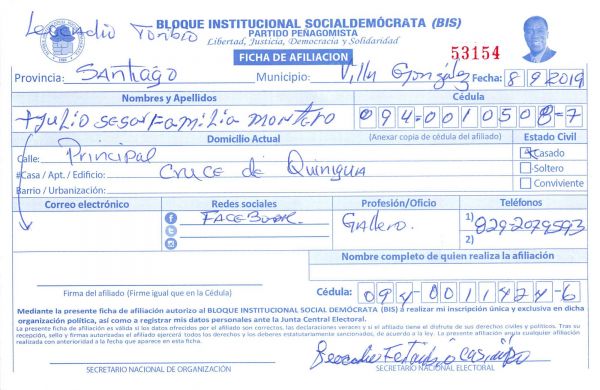 BLOQUE INSTITUCIONAL SOCIALDEMÓCRATA (BIS)
PARTIDO PEÑAGOMISTA
Libertad, Justicia, Democracia y Solidaridad
FICHA DE AFILIACION
53154
Provincia: Santiago Municipio: Villa González Fecha: 8/9/2019
Nombres y Apellidos Cédula
Julio sesar Familia montero 094-0010508-7
Domicilio Actual (Anexar copia de cédula del afiliado) Estado Civil
Calle: Principal Casado
#Casa / Apt. / Edificio: Cruce de Quinigua Soltero
Barrio / Urbanización: Conviviente
Correo electrónico Redes sociales Profesión/Oficio Teléfonos
FACEBOOK Gallero. 1) 829-2079593
2)
Nombre completo de quien realiza la afiliación
Firma del afiliado (Firme igual que en la Cédula) Cédula: 094-0011424-6
Mediante la presente ficha de afiliación autorizo al BLOQUE INSTITUCIONAL SOCIAL DEMÓCRATA (BIS) a realizar mi inscripción única y exclusiva en dicha
organización política, así como a registrar mis datos personales ante la Junta Central Electoral.
La presente ficha de afiliación es válida si los datos ofrecidos por el afiliado son correctos, las declaraciones veraces y si el afiliado tiene el disfrute de sus derechos civiles y políticos. Tras su
recepción, sello y firmas autorizadas el afiliado ejercerá todos los derechos y los deberes estatutariamente sancionados, de acuerdo a la ley. La presente afiliación anula cualquier afiliación
realizada con anterioridad a la fecha que aparece en esta ficha.
SECRETARIO NACIONAL DE ORGANIZACIÓN SECRETARIO NACIONAL ELECTORAL